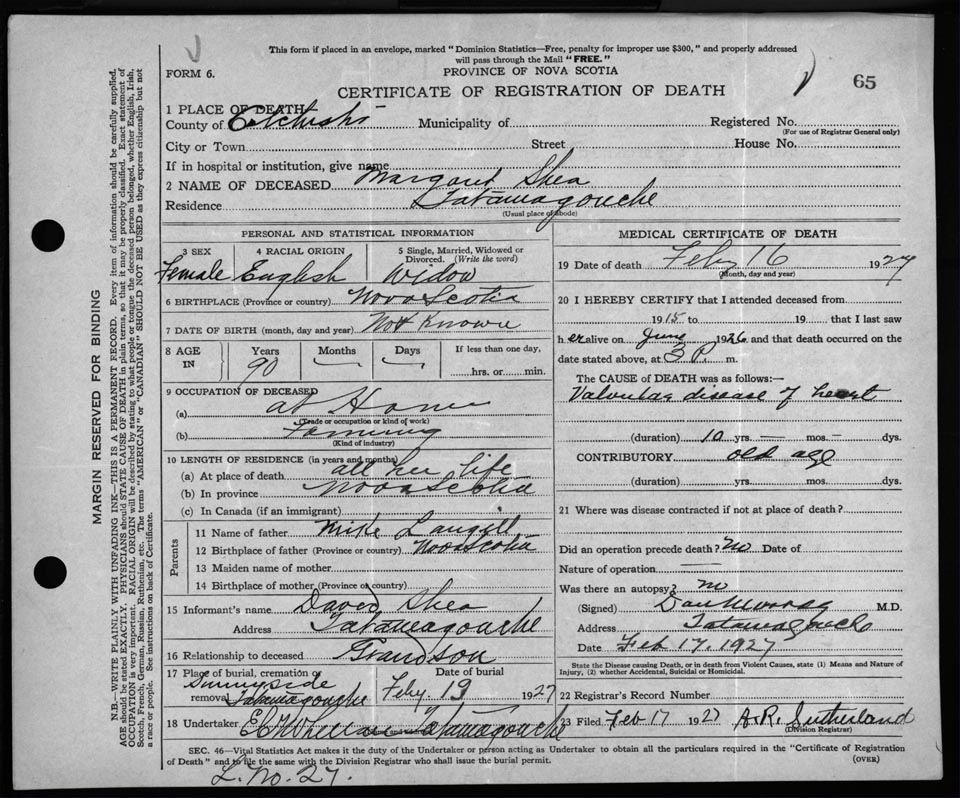 This form if placed in an envelope, marked "Dominion Statistics—Free, penalty for improper use $300," and properly addressed
will pass through the Mail "FREE."
FORM 6.
PROVINCE OF NOVA SCOTIA
65
CERTIFICATE OF REGISTRATION OF DEATH
1 PLACE OF DEATH
County of Municipality of Registered No.
(For use of Registrar General only)
City or Town Street House No.
If in hospital or institution, give name
2 NAME OF DECEASED Margaret Shea
Residence Tatamagouche
(Usual place of abode)
PERSONAL AND STATISTICAL INFORMATION
3 SEX 4 RACIAL ORIGIN 5 Single, Married, Widowed or
Divorced. (Write the word)
Female English Widow
6 BIRTHPLACE (Province or country) Nova Scotia
7 DATE OF BIRTH (month, day and year) Not Known
8 AGE IN Years Months Days If less than one day,
90 hrs. or min.
9 OCCUPATION OF DECEASED
(a) at Home
(Trade or occupation or kind of work)
(b) Farming
(Kind of industry)
10 LENGTH OF RESIDENCE (in years and months)
(a) At place of death all her life
(b) In province Nova Scotia
(c) In Canada (if an immigrant)
Parents
11 Name of father Mike Langill
12 Birthplace of father (Province or country) Nova Scotia
13 Maiden name of mother
14 Birthplace of mother (Province or country)
15 Informant's name David Shea
Address Tatamagouche
16 Relationship to deceased Grandson
17 Place of burial, cremation or removal Date of burial
Sunnyside
Tatamagouche Feby 19 1927
18 Undertaker Tatamagouche
MEDICAL CERTIFICATE OF DEATH
19 Date of death Feby 16 1927
(Month, day and year)
20 I HEREBY CERTIFY that I attended deceased from
1915 to 19 that I last saw
her alive on June 1926 and that death occurred on the
date stated above, at 3 P. m.
The CAUSE of DEATH was as follows:—
Valvular disease of heart
(duration) 10 yrs. — mos. — dys.
CONTRIBUTORY old age
(duration) yrs. mos. dys.
21 Where was disease contracted if not at place of death?
Did an operation precede death? No Date of
Nature of operation —
Was there an autopsy? no
(Signed) M.D.
Address Tatamagouche
Date Feb 17, 1927
State the Disease causing Death, or in death from Violent Causes, state (1) Means and Nature of
Injury, (2) whether Accidental, Suicidal or Homicidal.
22 Registrar's Record Number
23 Filed Feb 17 1927 A.R. Sutherland
(Division Registrar)
SEC. 46—Vital Statistics Act makes it the duty of the Undertaker or person acting as Undertaker to obtain all the particulars required in the "Certificate of Registration
of Death" and to file the same with the Division Registrar who shall issue the burial permit.
(OVER)
L. No. 27.
MARGIN RESERVED FOR BINDING
N.B.—WRITE PLAINLY WITH UNFADING INK—THIS IS A PERMANENT RECORD. Every item of information should be carefully supplied.
AGE should be stated EXACTLY. PHYSICIANS should STATE CAUSE OF DEATH in plain terms, so that it may be properly classified. Exact statement of
OCCUPATION is very important. RACIAL ORIGIN will be described by stating to what people or tongue the deceased person belonged, whether English, Irish,
Scotch, French, German, Russian, Ruthenian, etc. The terms "AMERICAN" or "CANADIAN" SHOULD NOT BE USED as they express citizenship but not
a race or people. See instructions on back of Certificate.